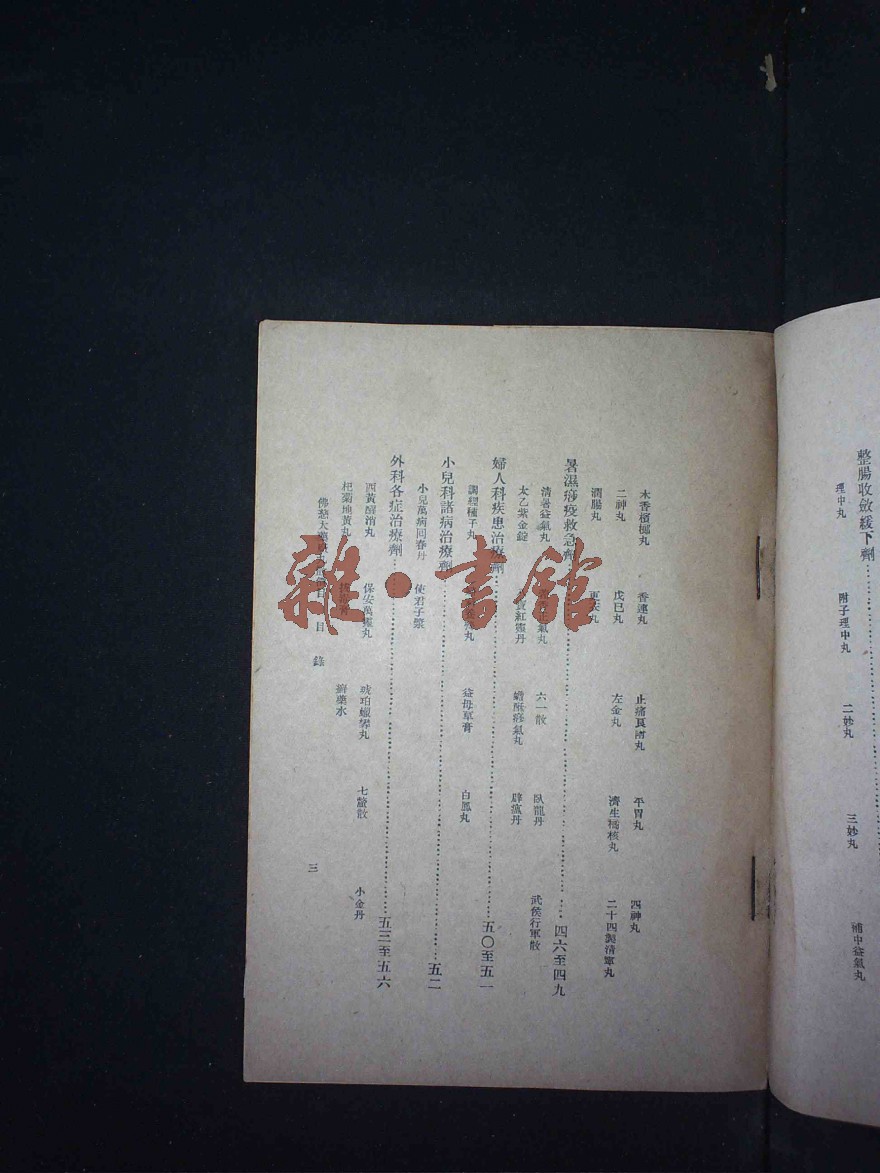 整腸收斂緩下劑
理中丸 附子理中丸 二妙丸 三妙丸 補中益氣丸
木香檳榔丸 香連丸 止痛良附丸 平胃丸 四神丸
二神丸 戊已丸 左金丸 濟生橘核丸 二十四製清寧丸
潤腸丸 更衣丸
暑濕痧疫救急劑 四六至四九
清暑益氣丸 六一散 臥龍丹 武侯行軍散
太乙紫金錠 紅靈丹 蟾酥痧氣丸 辟瘟丹
婦人科疾患治療劑 五〇至五一
調經種子丸 益母草膏 白鳳丸
小兒科諸病治療劑 五二
小兒萬病回春丹 使君子漿
外科各症治療劑 五三至五六
西黃醒消丸 保安萬靈丸 琥珀蠟礬丸 七釐散 小金丹
杞菊地黃丸 癬藥水
佛慈大藥 目錄 三
雜·書館